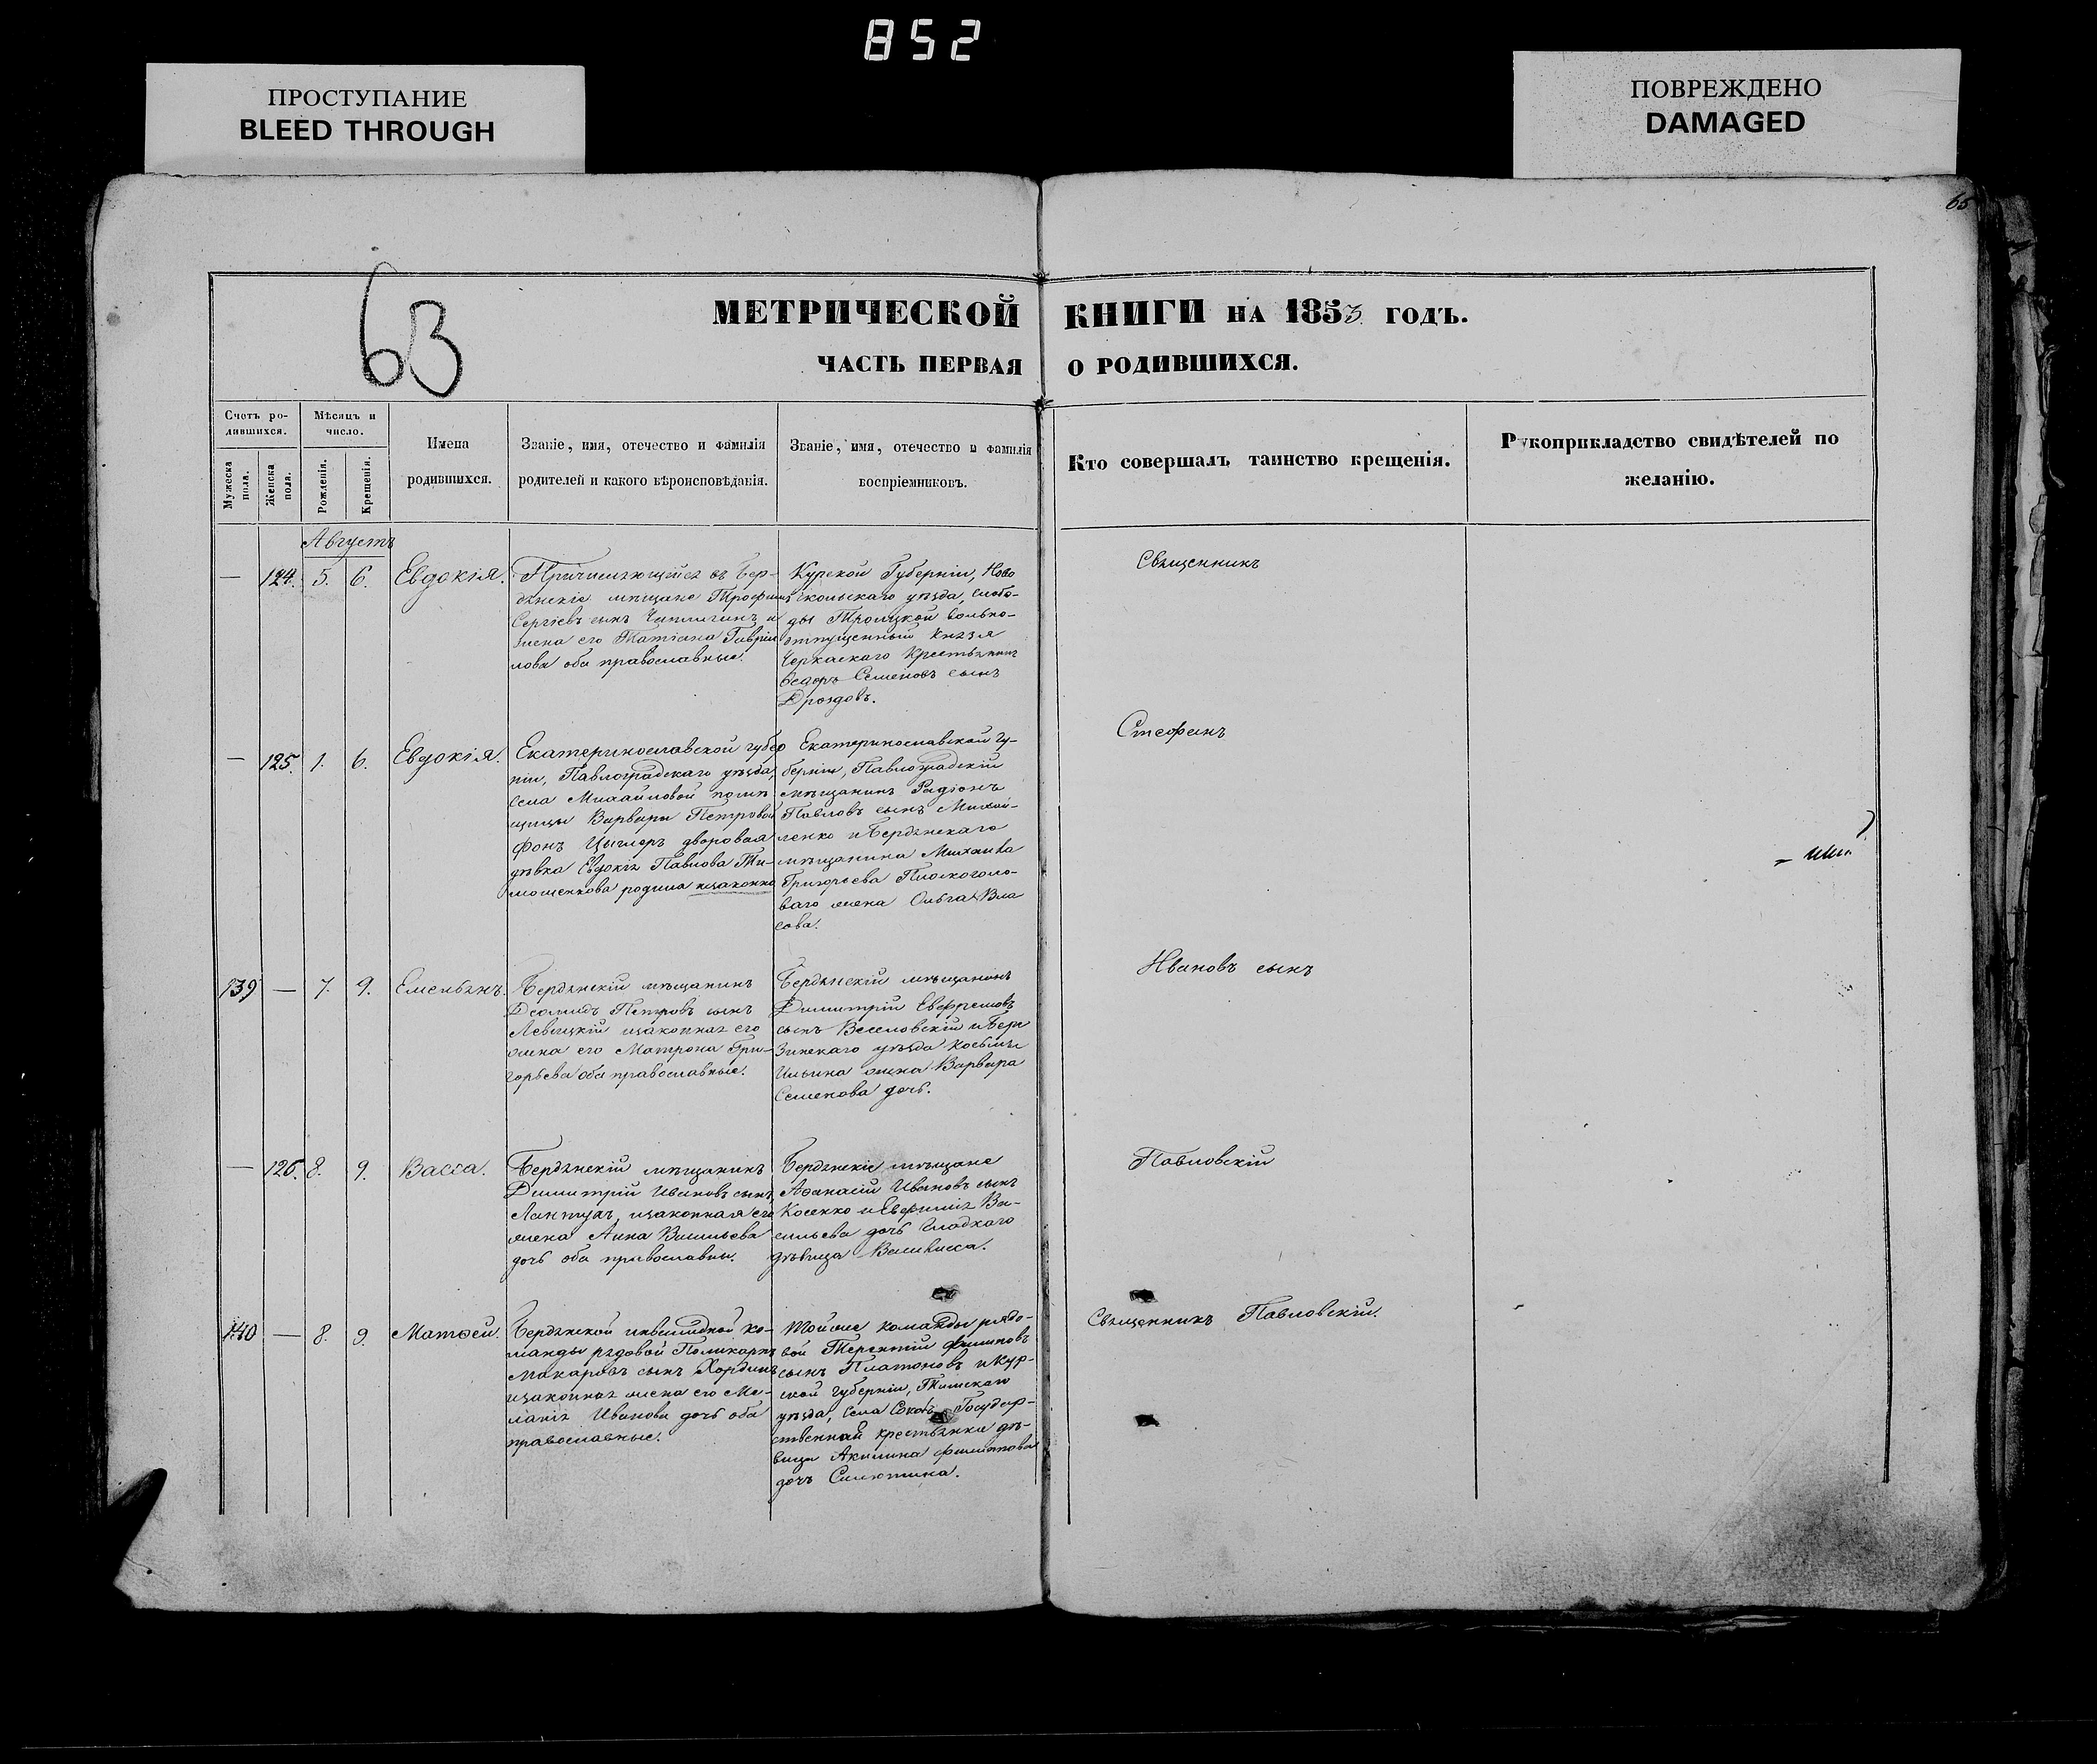 852
ПРОСТУПАНИЕ
BLEED THROUGH
ПОВРЕЖДЕНО
DAMAGED
65
63
МЕТРИЧЕСКОЙ КНИГИ НА 1853 ГОДЪ.
ЧАСТЬ ПЕРВАЯ О РОДИВШИХСЯ.
Счетъ ро-
дившихся.
Мужеска пола.
Женска пола.
Мѣсяцъ и
число.
Рожденія.
Крещенія.
Имена
родившихся.
Званіе, имя, отечество и фамилія
родителей и какого вѣроисповѣданія.
Званіе, имя, отечество и фамилія
воспріемниковъ.
Кто совершалъ таинство крещенія.
Рукоприкладство свидѣтелей по
желанію.
Августъ
— 124. 5. 6. Евдокія.
Причисляющійся въ Бер-
дянскіе мѣщане Трофимъ
Сергіевъ сынъ и
жена его Татіана Гаврии
лова оба православные.
Курской Губерніи, Ново
оскольскаго уѣзда, слобо-
ды Троицкой вольно-
отпущенный Князя
Черкаскаго Крестьянинъ
Ѳеодоръ Семеновъ сынъ
Дроздовъ.
Священникъ
— 125. 1. 6. Евдокія.
Екатеринославской губер
ніи, Павлоградскаго уѣзда,
села Михайловой помѣ
щицы Варвары Петровой
фонъ Цыглеръ дворовая
дѣвка Евдокія Павлова Ти-
мошенкова родила незаконно
Екатеринославской гу-
берніи, Павлоградскій
мѣщанинъ Радіонъ
Павловъ сынъ Михай-
ленко и Бердянскаго
мѣщанина Михаила
Григорьева Плоскоголо-
ваго жена Ольга Вла
сова.
Стефанъ
139 — 7. 9. Емельянъ.
Бердянскій мѣщанинъ
Діомидъ Петровъ сынъ
Левицкій и законная его
жена его Матрона Гри-
горьева оба православные.
Бердянскій мѣщанинъ
Димитрій Евфремовъ
сынъ Веселовскій и Бер
уѣзда Косьмы
Ильина жена Варвара
Семенова дочь.
Ивановъ сынъ
— 126. 8. 9. Васса.
Бердянскій мѣщанинъ
Димитрій Ивановъ сынъ
Лантухъ, и законная его
жена Анна Васильева
дочь оба православны.
Бердянскіе мѣщане
Аѳанасій Ивановъ сынъ
Косенко и Евфимія Ва-
сильева дочь Гладкаго
дѣвица
Павловскій
140 — 8. 9. Матѳей.
Бердянской инвалидной ко-
манды рядовой Поликарпъ
Макаровъ сынъ Хординъ
и законная жена его Ме-
ланія Иванова дочь оба
православные.
Той же команды рядо-
вой Терентій Филиповъ
сынъ Платоновъ и Кур-
ской губерніи, Тимскаго
уѣзда, села Государ-
ственной крестьянки дѣ-
вица Акилина Филиппова
дочь Силютина.
Священникъ Павловскій.